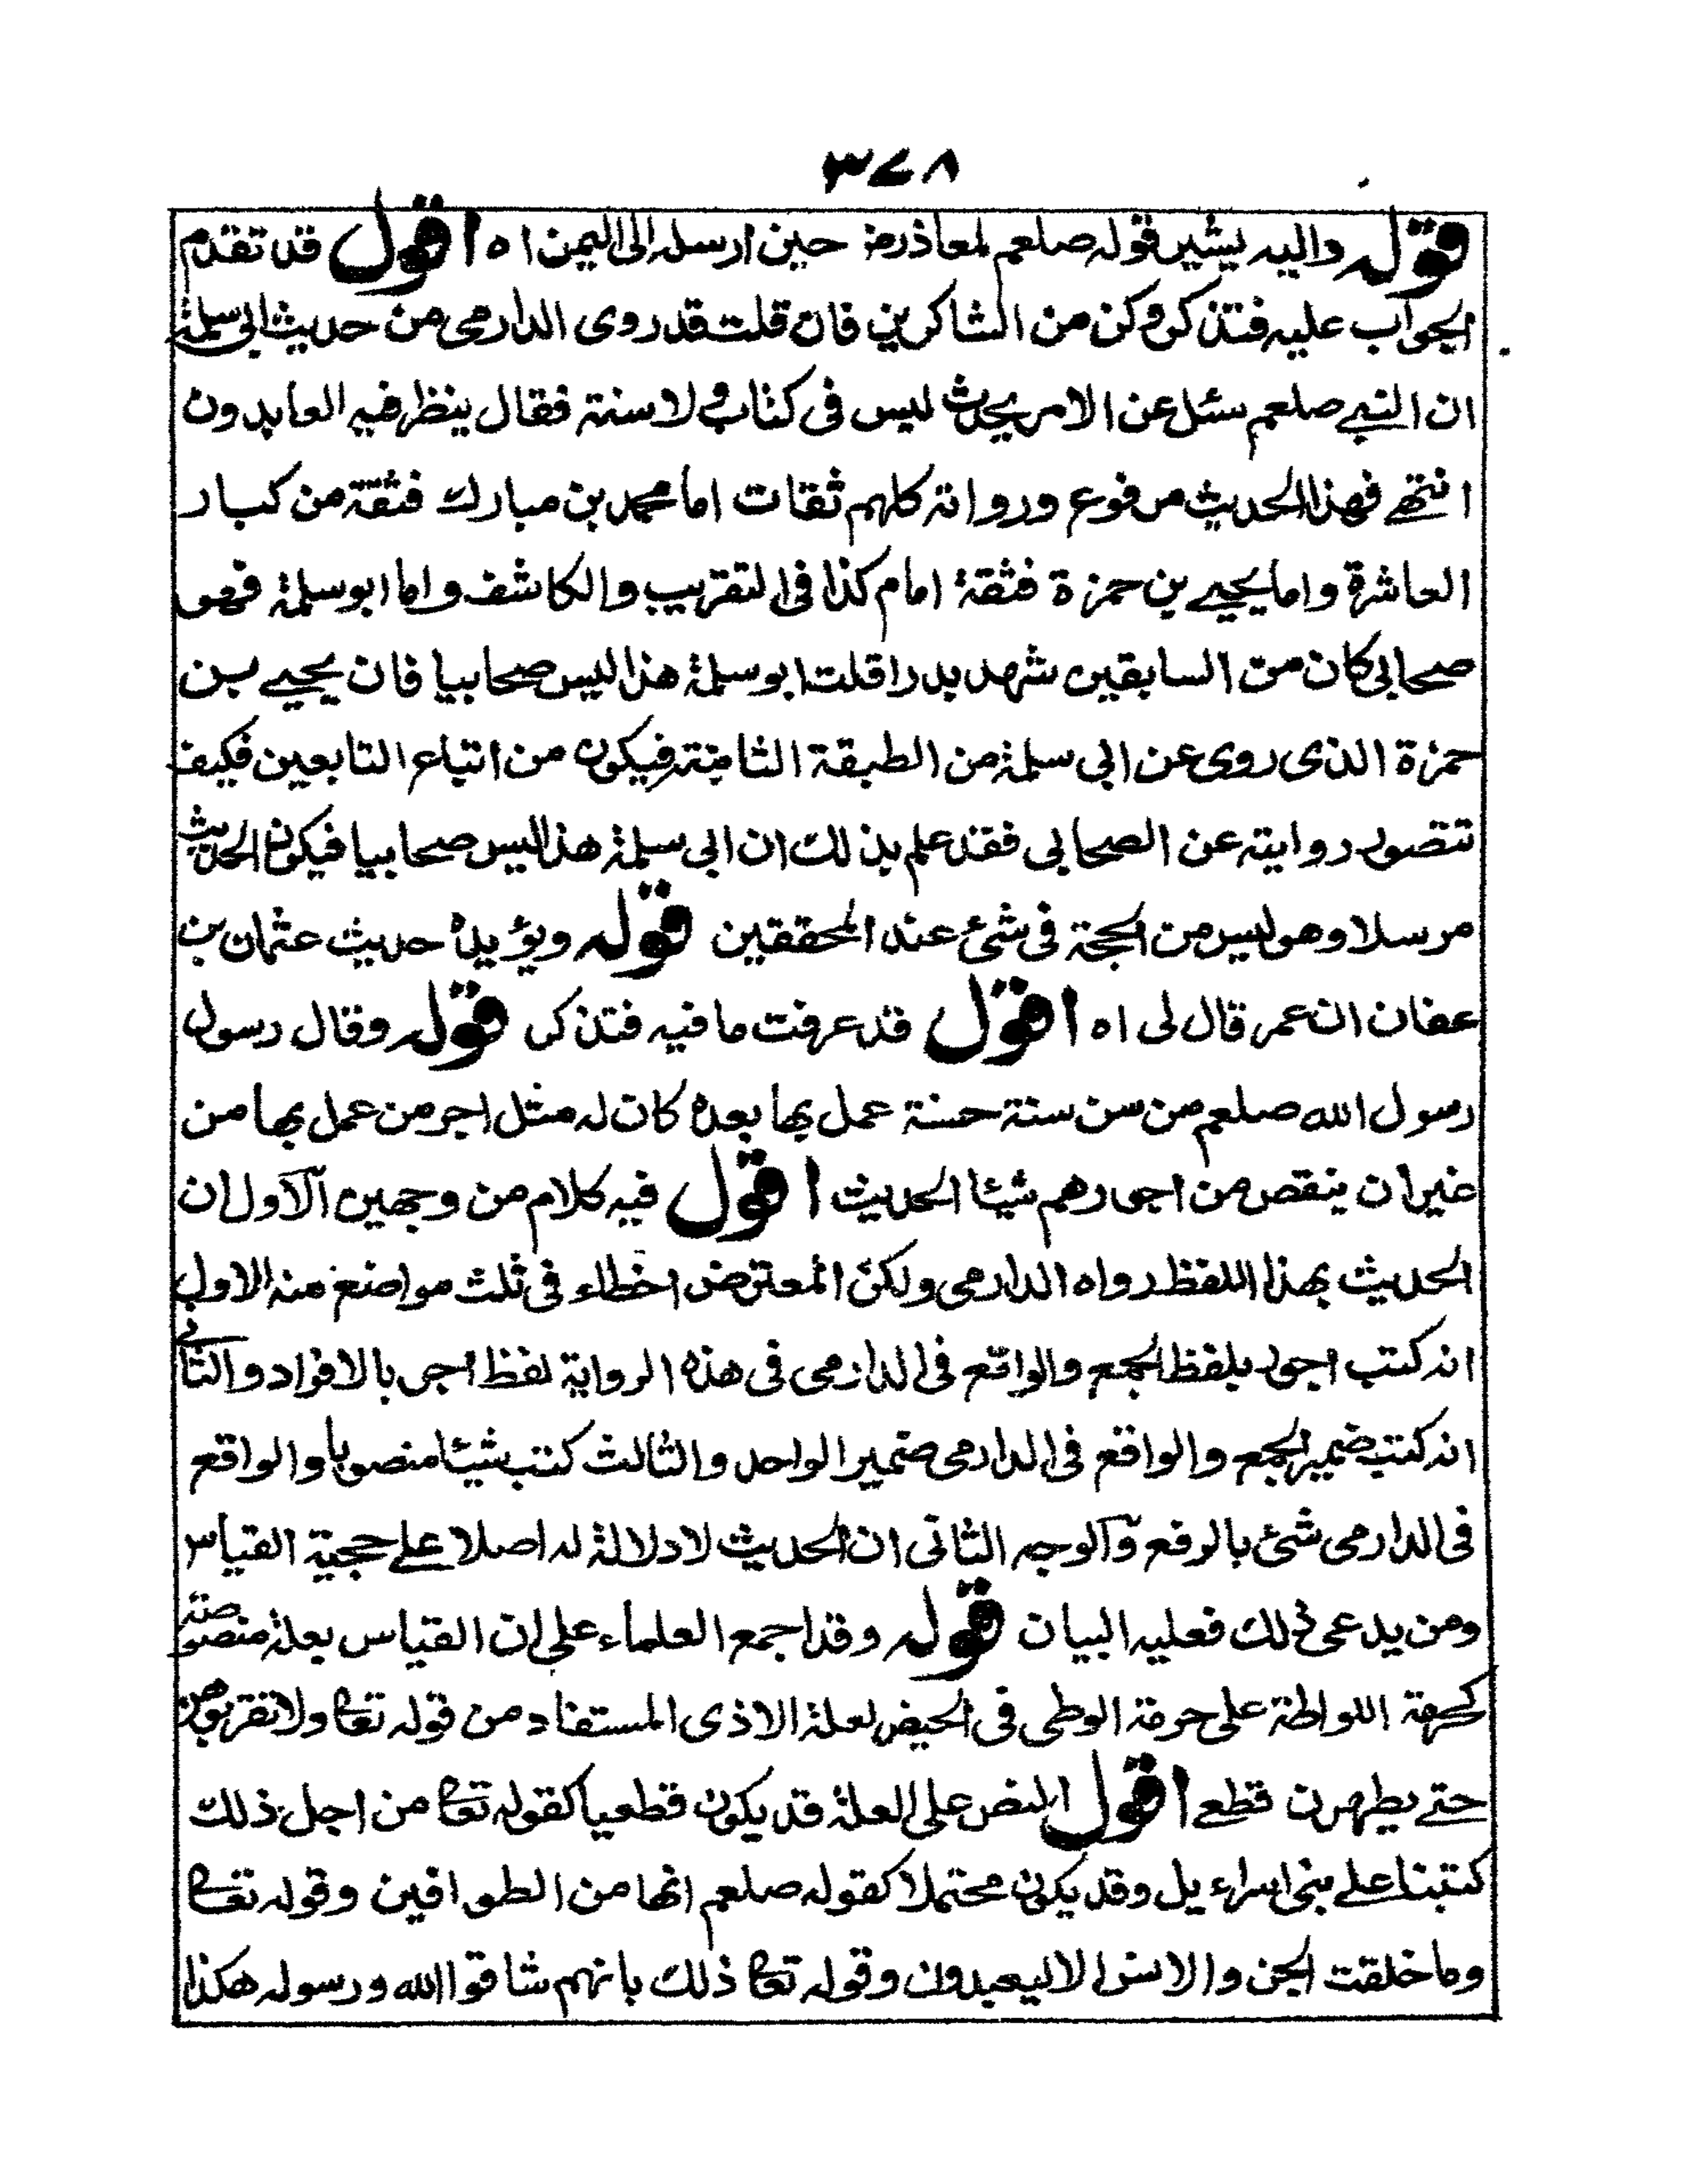 ٣٧٨
قوله واليه يشير قوله صلعم لمعاذ رض حين ارسله الى اليمن اه اقول قد تقدم
الجواب عليه فتذكر وكن من الشاكرين فان قلت قد روى الدارمي من حديث ابي سلمة
ان النبي صلعم سئل عن الامر يحدث ليس فى كتاب ولا سنة فقال ينظر فيه العابدون
انتهى فهذا الحديث مرفوع ورواته كلهم ثقات اما محمد بن مبارك فثقة من كبار
العاشرة واما يحيى بن حمزة فثقة امام كذا فى التقريب والكاشف واما ابو سلمة فهو
صحابي كان من السابقين شهد بدرا قلت ابو سلمة هذا ليس صحابيا فان يحيى بن
حمزة الذى روى عن ابي سلمة من الطبقة الثامنة فيكون من اتباع التابعين فكيف
تتصور روايته عن الصحابي فقد علم بذلك ان ابي سلمة هذا ليس صحابيا فيكون الحديث
مرسلا وهو ليس من الحجة فى شئ عند المحققين قوله ويؤيده حديث عثمان بن
عفان ان عمر قال لى اه اقول قد عرفت ما فيه فتذكر قوله وقال رسول
رسول الله صلعم من سن سنة حسنة عمل بها بعده كان له مثل اجر من عمل بها من
غير ان ينقص من اجورهم شيئا الحديث اقول فيه كلام من وجهين الآول ان
الحديث بهذا اللفظ رواه الدارمي ولكن المعترض اخطاء فى ثلث مواضع منه الاول
انه كتب اجور بلفظ الجمع والواقع فى الدارمي فى هذه الرواية لفظ اجر بالافراد والثانى
انه كتب ضمير الجمع والواقع فى الدارمي ضمير الواحد والثالث كتب شيئا منصوبا والواقع
فى الدارمي شئ بالرفع وآلوجه الثانى ان الحديث لا دلالة له اصلا على حجية القياس
ومن يدعى ذلك فعليه البيان قوله وقد اجمع العلماء على ان القياس بعلة منصوصة
كحرمة اللواطة على حرمة الوطى فى الحيض لعلة الاذى المستفاد من قوله تعا ولا تقربوهن
حتى يطهرن قطعى اقول النص على العلة قد يكون قطعيا كقوله تعا من اجل ذلك
كتبنا على بنى اسراءيل وقد يكون محتملا كقوله صلعم انها من الطوافين وقوله تعا
وما خلقت الجن والانس الا ليعبدون وقوله تعا ذلك بانهم شاقوا الله ورسوله هكذا